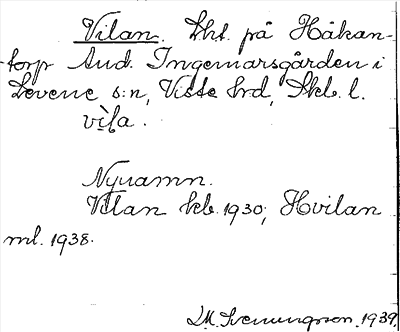 Vilan. Lht. på Håkan-
torp And. Ingemarsgården i
Levene s:n, Viste hrd, Skb. l.
vi̇̀la.
Nynamn.
Vilan kb. 1930; Hvilan
ml. 1938.
I.M. Svenungsson 1939